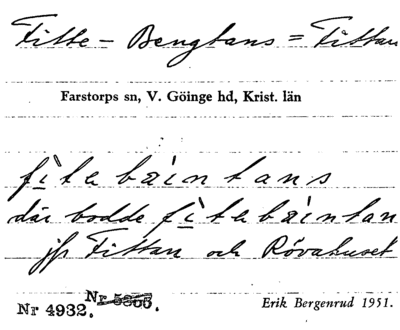 Fitte - Bengtans = Fittan
Farstorps sn, V. Göinge hd, Krist. län
fìtebäintans
där bodde fìtebäintan
jfr Fittan och Rövahuset
Nr 4932. Nr 5363.
Erik Bergenrud 1951.